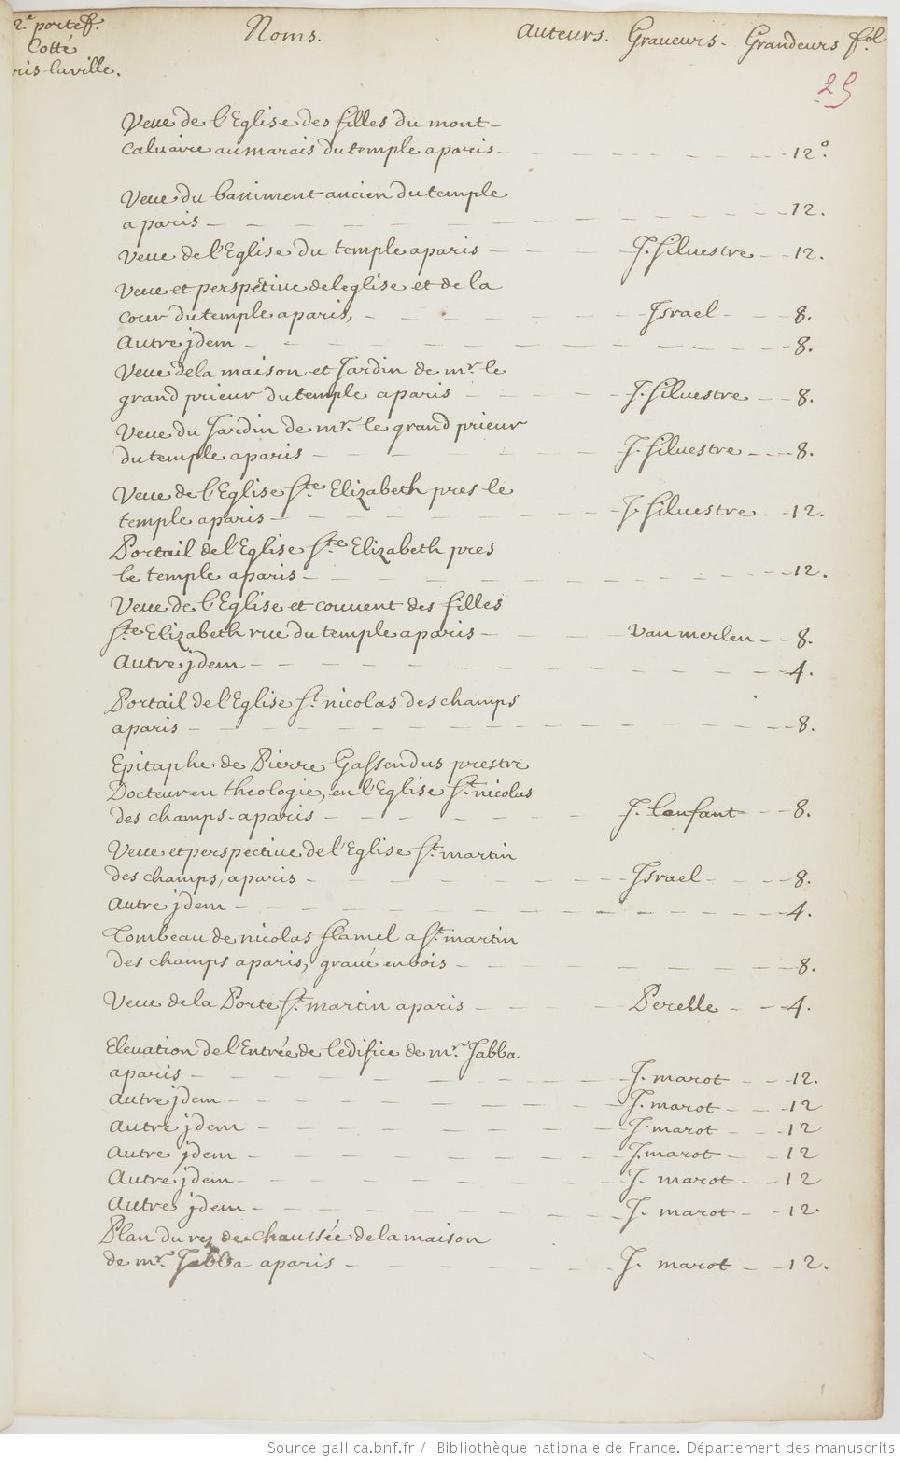 2.e portef. Noms. Auteurs. Graveurs. Grandeurs fol
Cotté
ris la ville.
25
Veue de l'Eglise des filles du mont-
Calvaire au marais du temple a paris - 12º.
Veue du batiment ancien du temple
a paris - 12.
Veue de l'Eglise du temple a paris - J. Silvestre - 12.
Veue et perspétive de leglise et de la
cour du temple a paris, - Israel - 8.
Autre jdem - 8.
Veue de la maison et Jardin de mr. le
grand prieur du temple a paris - J. Silvestre - 8.
Veue du Jardin de mr. le grand prieur
du temple a paris - J. Silvestre - 8.
Veue de l'Eglise Ste Elizabeth pres le
temple a paris - J. Silvestre - 12.
Portail de l'Eglise Ste Elizabeth pres
le temple a paris - 12.
Veue de l'Eglise et couvent des filles
Ste Elizabeth rue du temple a paris - van merlen - 8.
Autre jdem - 4.
Portail de l'Eglise St. nicolas des champs
a paris - 8.
Epitaphe de Pierre Gassendus prestre
Docteur en theologie, en l'Eglise St. nicolas
des champs - a paris - J. Lenfant - 8.
Veue et perspective de l'Eglise St. martin
des champs, a paris - Israel - 8.
Autre jdem - 4.
Tombeau de nicolas flamel a St. martin
des champs a paris, gravé en bois - 8.
Veue de la Porte St. martin a paris - Perelle - 4.
Elevation de l'Entrée de ledifice de mr. Jabba.
a paris - J. marot - 12.
Autre jdem - J. marot - 12
Autre jdem - J. marot - 12
Autre jdem - J. marot - 12
Autre jdem - J. marot - 12
Autre jdem - J. marot - 12.
Plan du rez de chaussée de la maison
de mr. Jabba a paris - J. marot - 12.
Source gallica.bnf.fr / Bibliothèque nationale de France. Département des manuscrits